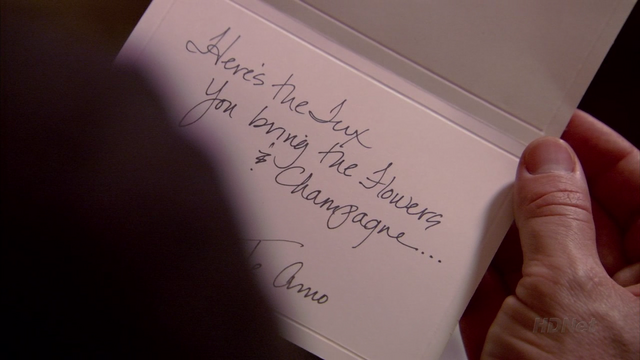 Here's the Tux
You bring the Flowers
& Champagne...
Te Amo
HDNet